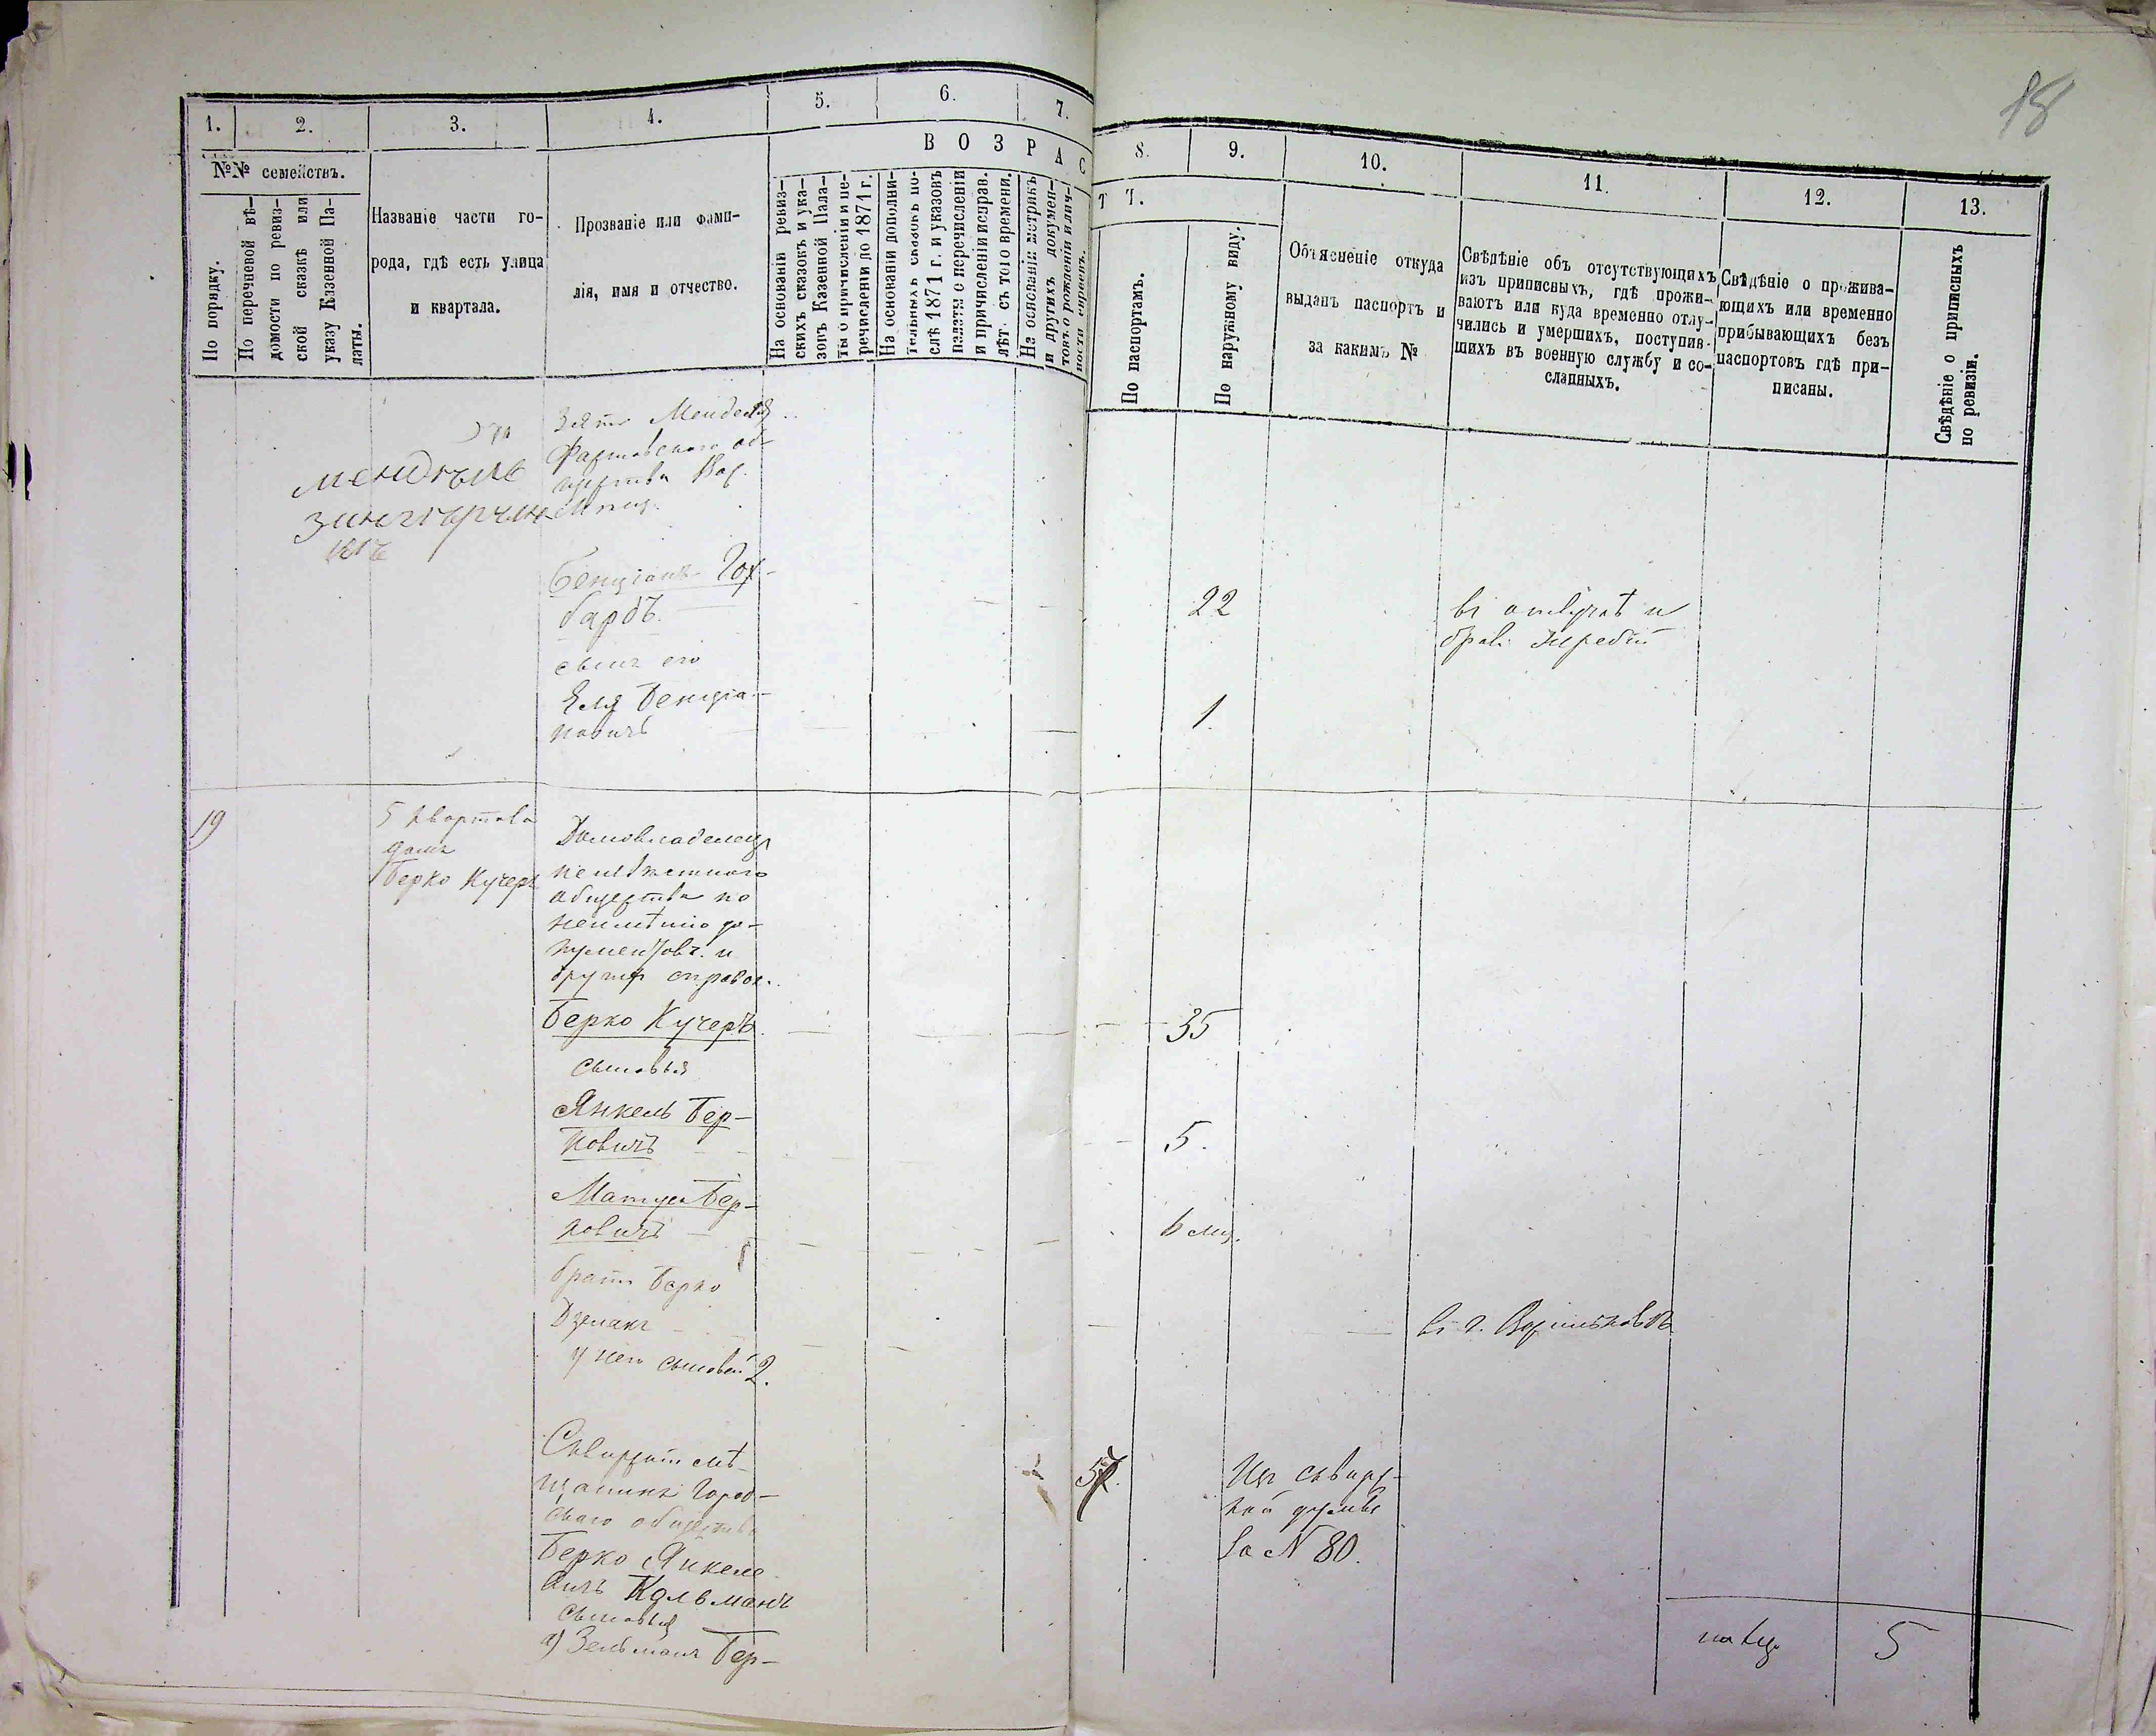 18
1.
2.
3.
4.
5.
6.
7.
8.
9.
10.
11.
12.
13.
№№ семействъ.
По порядку.
По перечневой вѣ-
домости по ревиз-
ской сказкѣ или
указу Казенной Па-
латы.
Названіе части го-
рода, гдѣ есть улица
и квартала.
Прозваніе или фами-
лія, имя и отчество.
ВОЗРАСТЪ.
На основаніи ревиз-
скихъ сказокъ и ука-
зовъ Казенной Пала-
ты о причисленіи и пе-
речисленіи до 1871 г.
На основаніи дополни-
тельныхъ сказокъ по-
слѣ 1871 г. и указовъ
палаты о перечисленіи
и причисленіи исправ.
лѣт. съ того времени.
На основаніи метрикъ
и другихъ докумен-
товъ о рожденіи и лич-
ности евреевъ.
По паспортамъ.
По наружному виду.
Объясненіе откуда
выданъ паспортъ и
за какимъ №
Свѣдѣніе объ отсутствующихъ
изъ приписныхъ, гдѣ прожи-
ваютъ или куда временно отлу-
чились и умершихъ, поступив-
шихъ въ военную службу и со-
сланныхъ.
Свѣдѣніе о прожива-
ющихъ или временно
прибывающихъ безъ
паспортовъ гдѣ при-
писаны.
Свѣдѣніе о приписныхъ
по ревизіи.
Зять Менделя
общества
Бенціанъ Гох-
барбъ
22
сынъ его
Еля Бенціа-
новичъ
1
19
5 квартала
домъ
Берко Кучеръ
Домовладелецъ
неизвѣстнаго
общества по
неимѣнію до-
кументовъ и
других справок.
Берко Кучеръ
35
сыновья
Янкель Бер-
ковичъ
5.
Бер-
ковичъ
6 мц.
братъ Берко
въ г.
у него сыновей 2.
Сквирскій мѣ-
щанинъ Город-
скаго общества
Берко Янкеле
вичъ Кальманъ
57.
Изъ сквирс-
кой думы
За № 80.
сыновья
а) Зельманъ Бер-
5